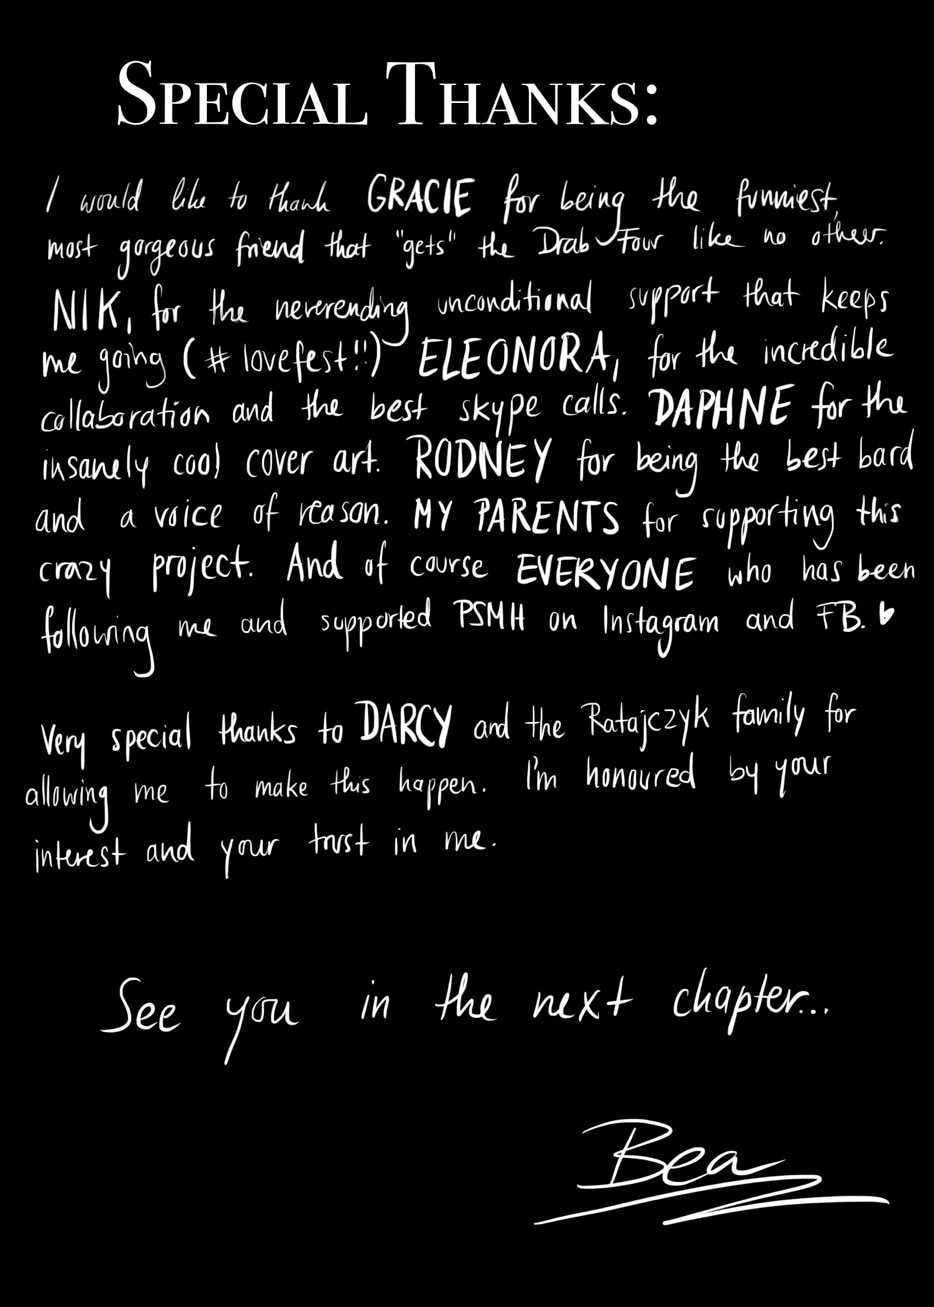 SPECIAL THANKS:
I would like to thank GRACIE for being the funniest,
most gorgeous friend that "gets" the Drab Four like no other.
NIK, for the neverending unconditional support that keeps
me going (# lovefest!!) ELEONORA, for the incredible
collaboration and the best skype calls. DAPHNE for the
insanely cool cover art. RODNEY for being the best bard
and a voice of reason. MY PARENTS for supporting this
crazy project. And of course EVERYONE who has been
following me and supported PSMH on Instagram and FB. ♥
Very special thanks to DARCY and the Ratajczyk family for
allowing me to make this happen. I'm honoured by your
interest and your trust in me.
See you in the next chapter...
Bea